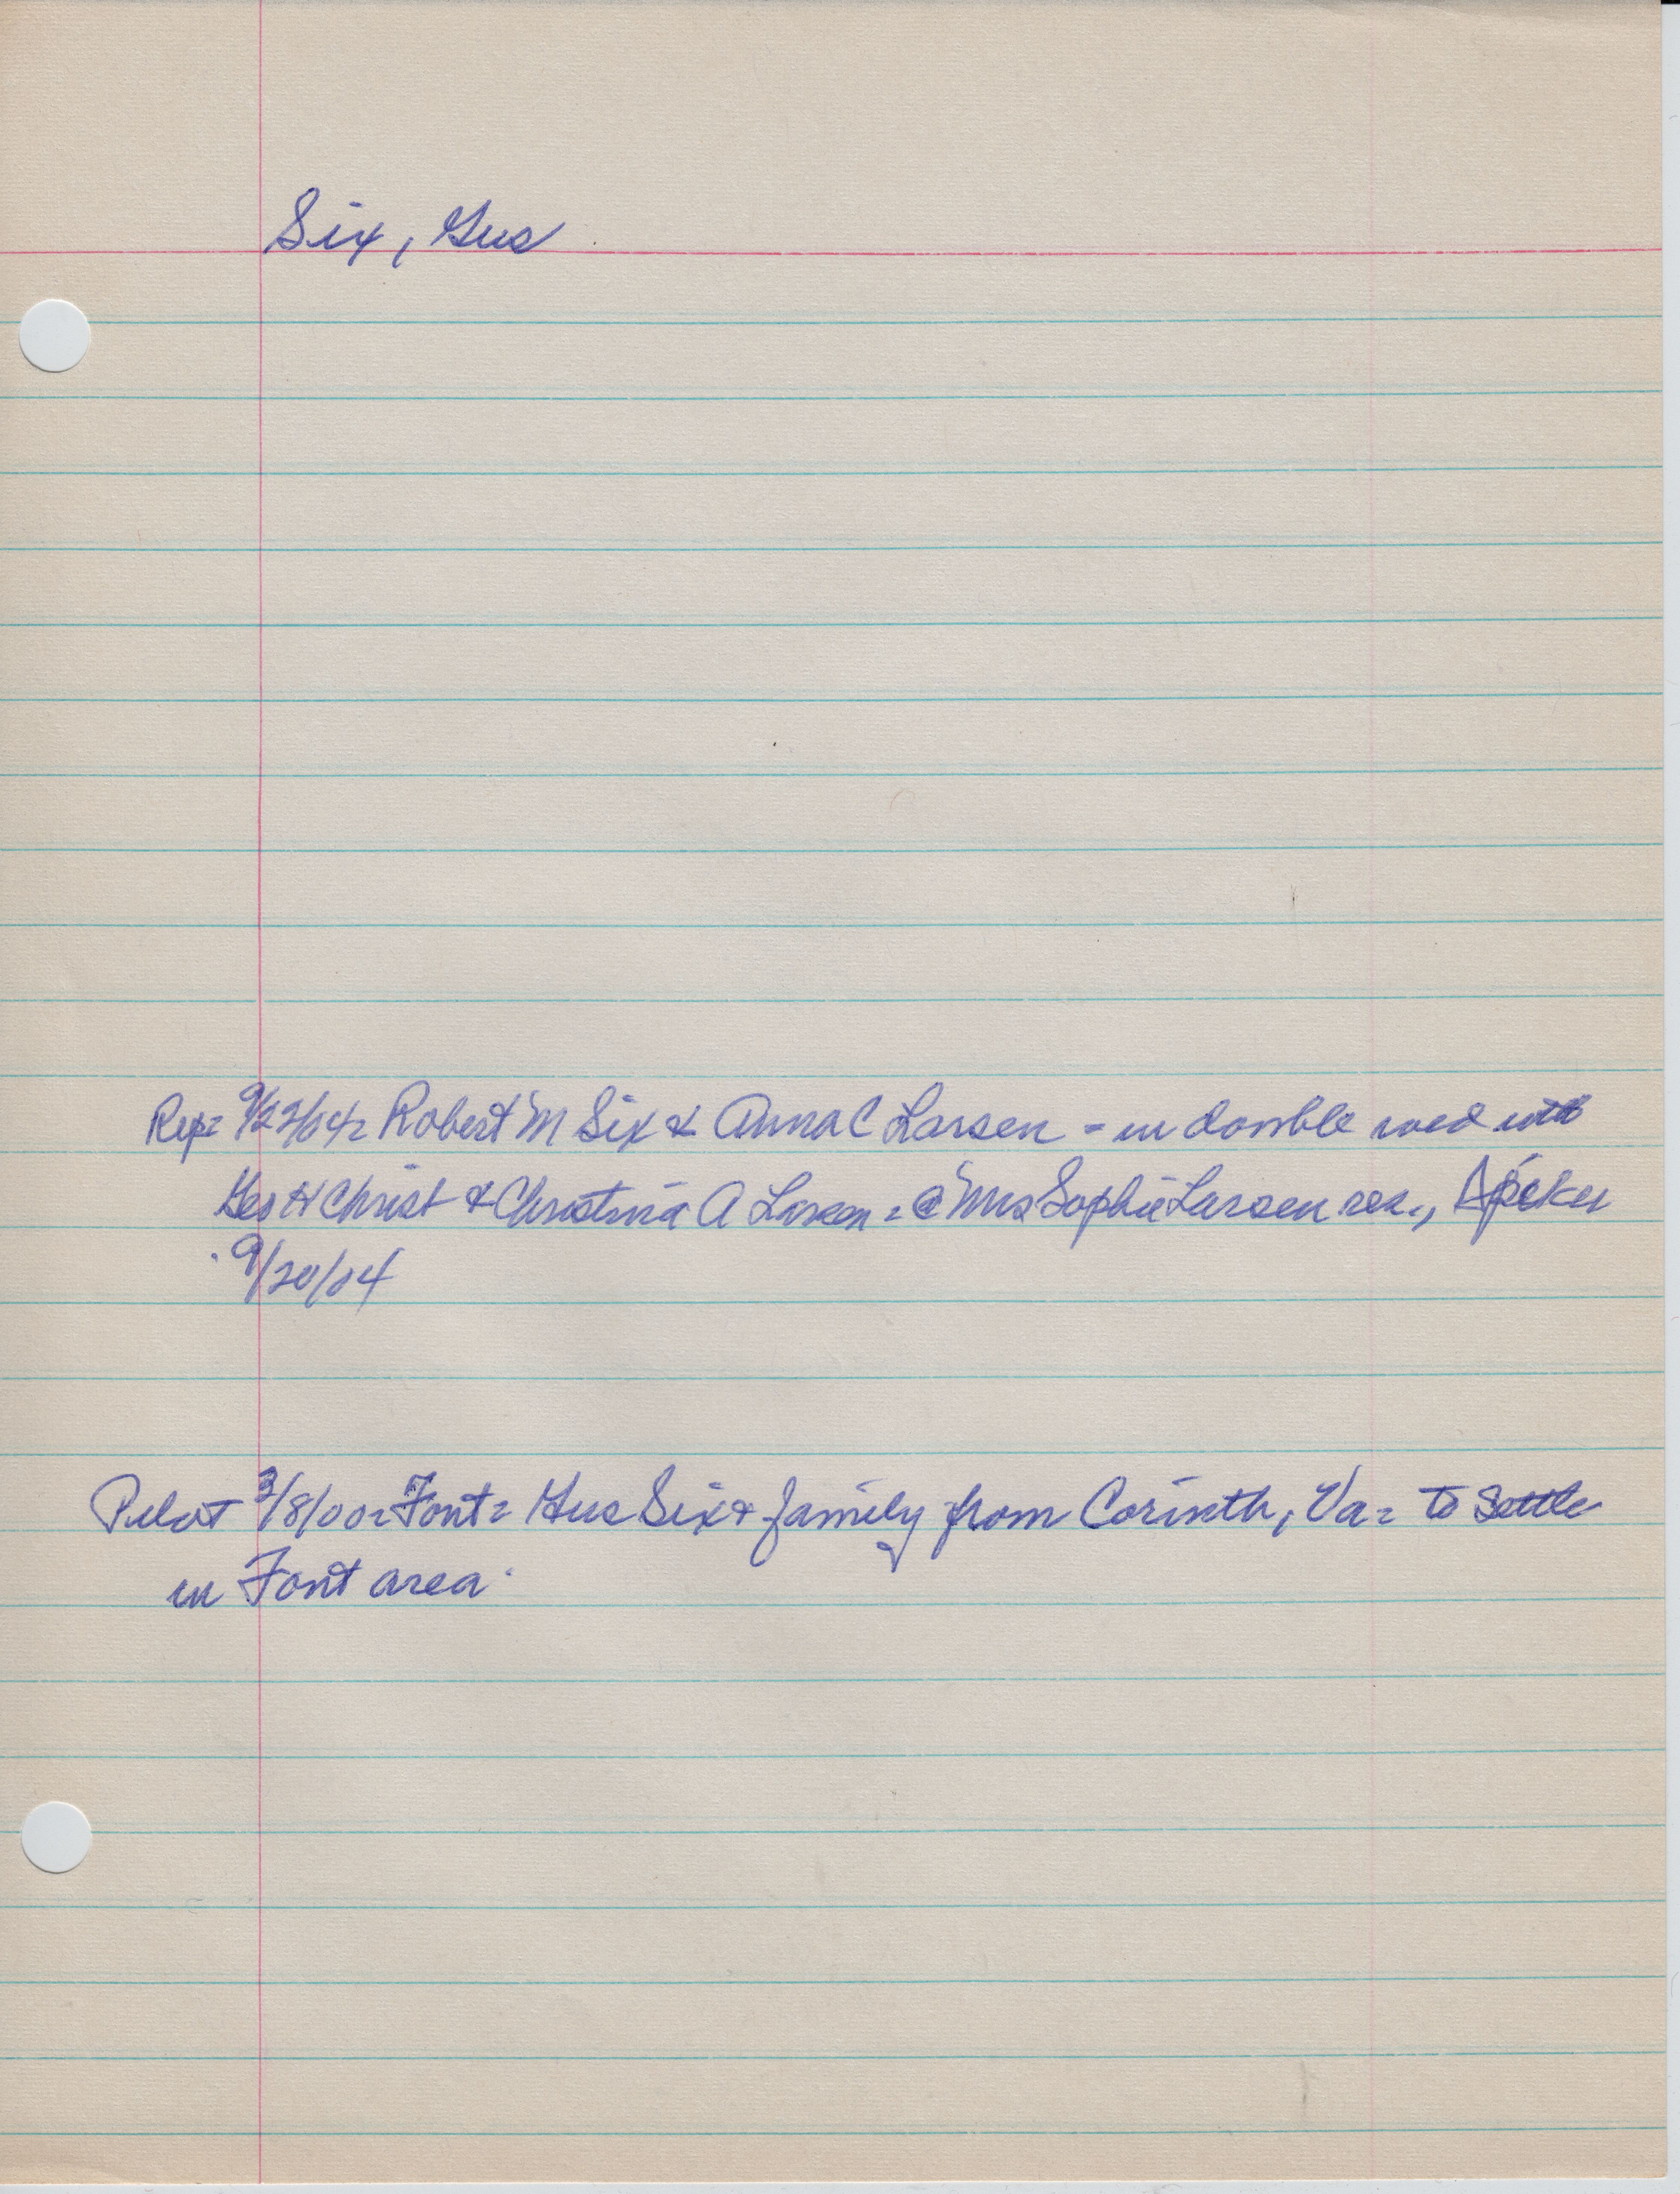 Six, Gus
Rep= 9/22/04= Robert M Six & Anna C Larsen - in double wed with
Geo H Christ & Christina A Larsen = @ Mrs Sophie Larsen res.,
9/20/04
Pilot 3/8/00= Font= Gus Six & family from Corinth, Va = to settle
in Font area.